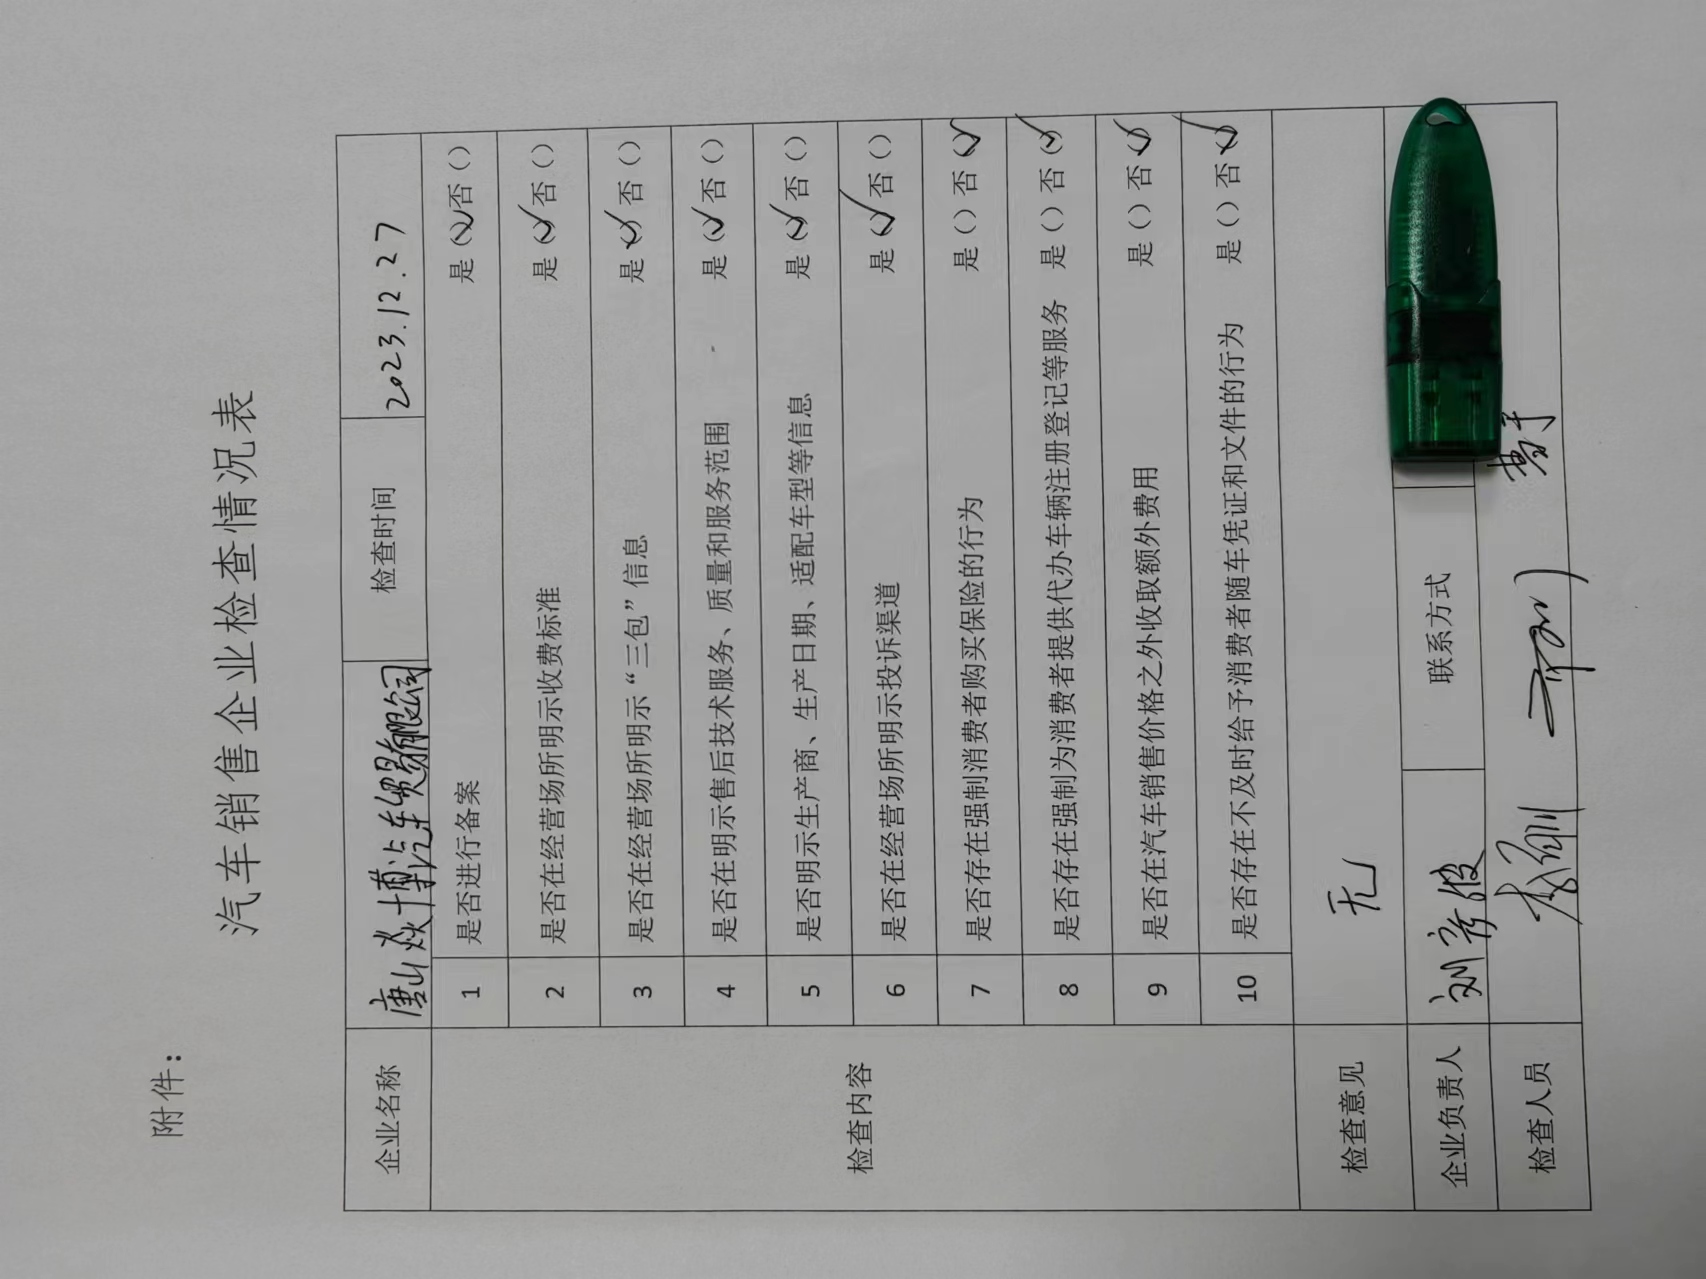 附件：
汽车销售企业检查情况表
企业名称 唐山焱博汽车贸易有限公司 检查时间 2023.12.27
检查内容
1 是否进行备案 是（✓）否（）
2 是否在经营场所明示收费标准 是（✓）否（）
3 是否在经营场所明示“三包”信息 是（✓）否（）
4 是否在明示售后技术服务、质量和服务范围 是（✓）否（）
5 是否明示生产商、生产日期、适配车型等信息 是（✓）否（）
6 是否在经营场所明示投诉渠道 是（✓）否（）
7 是否存在强制消费者购买保险的行为 是（）否（✓）
8 是否存在强制为消费者提供代办车辆注册登记等服务 是（）否（✓）
9 是否在汽车销售价格之外收取额外费用 是（）否（✓）
10 是否存在不及时给予消费者随车凭证和文件的行为 是（）否（✓）
检查意见 无
企业负责人 刘彦波 联系方式
检查人员